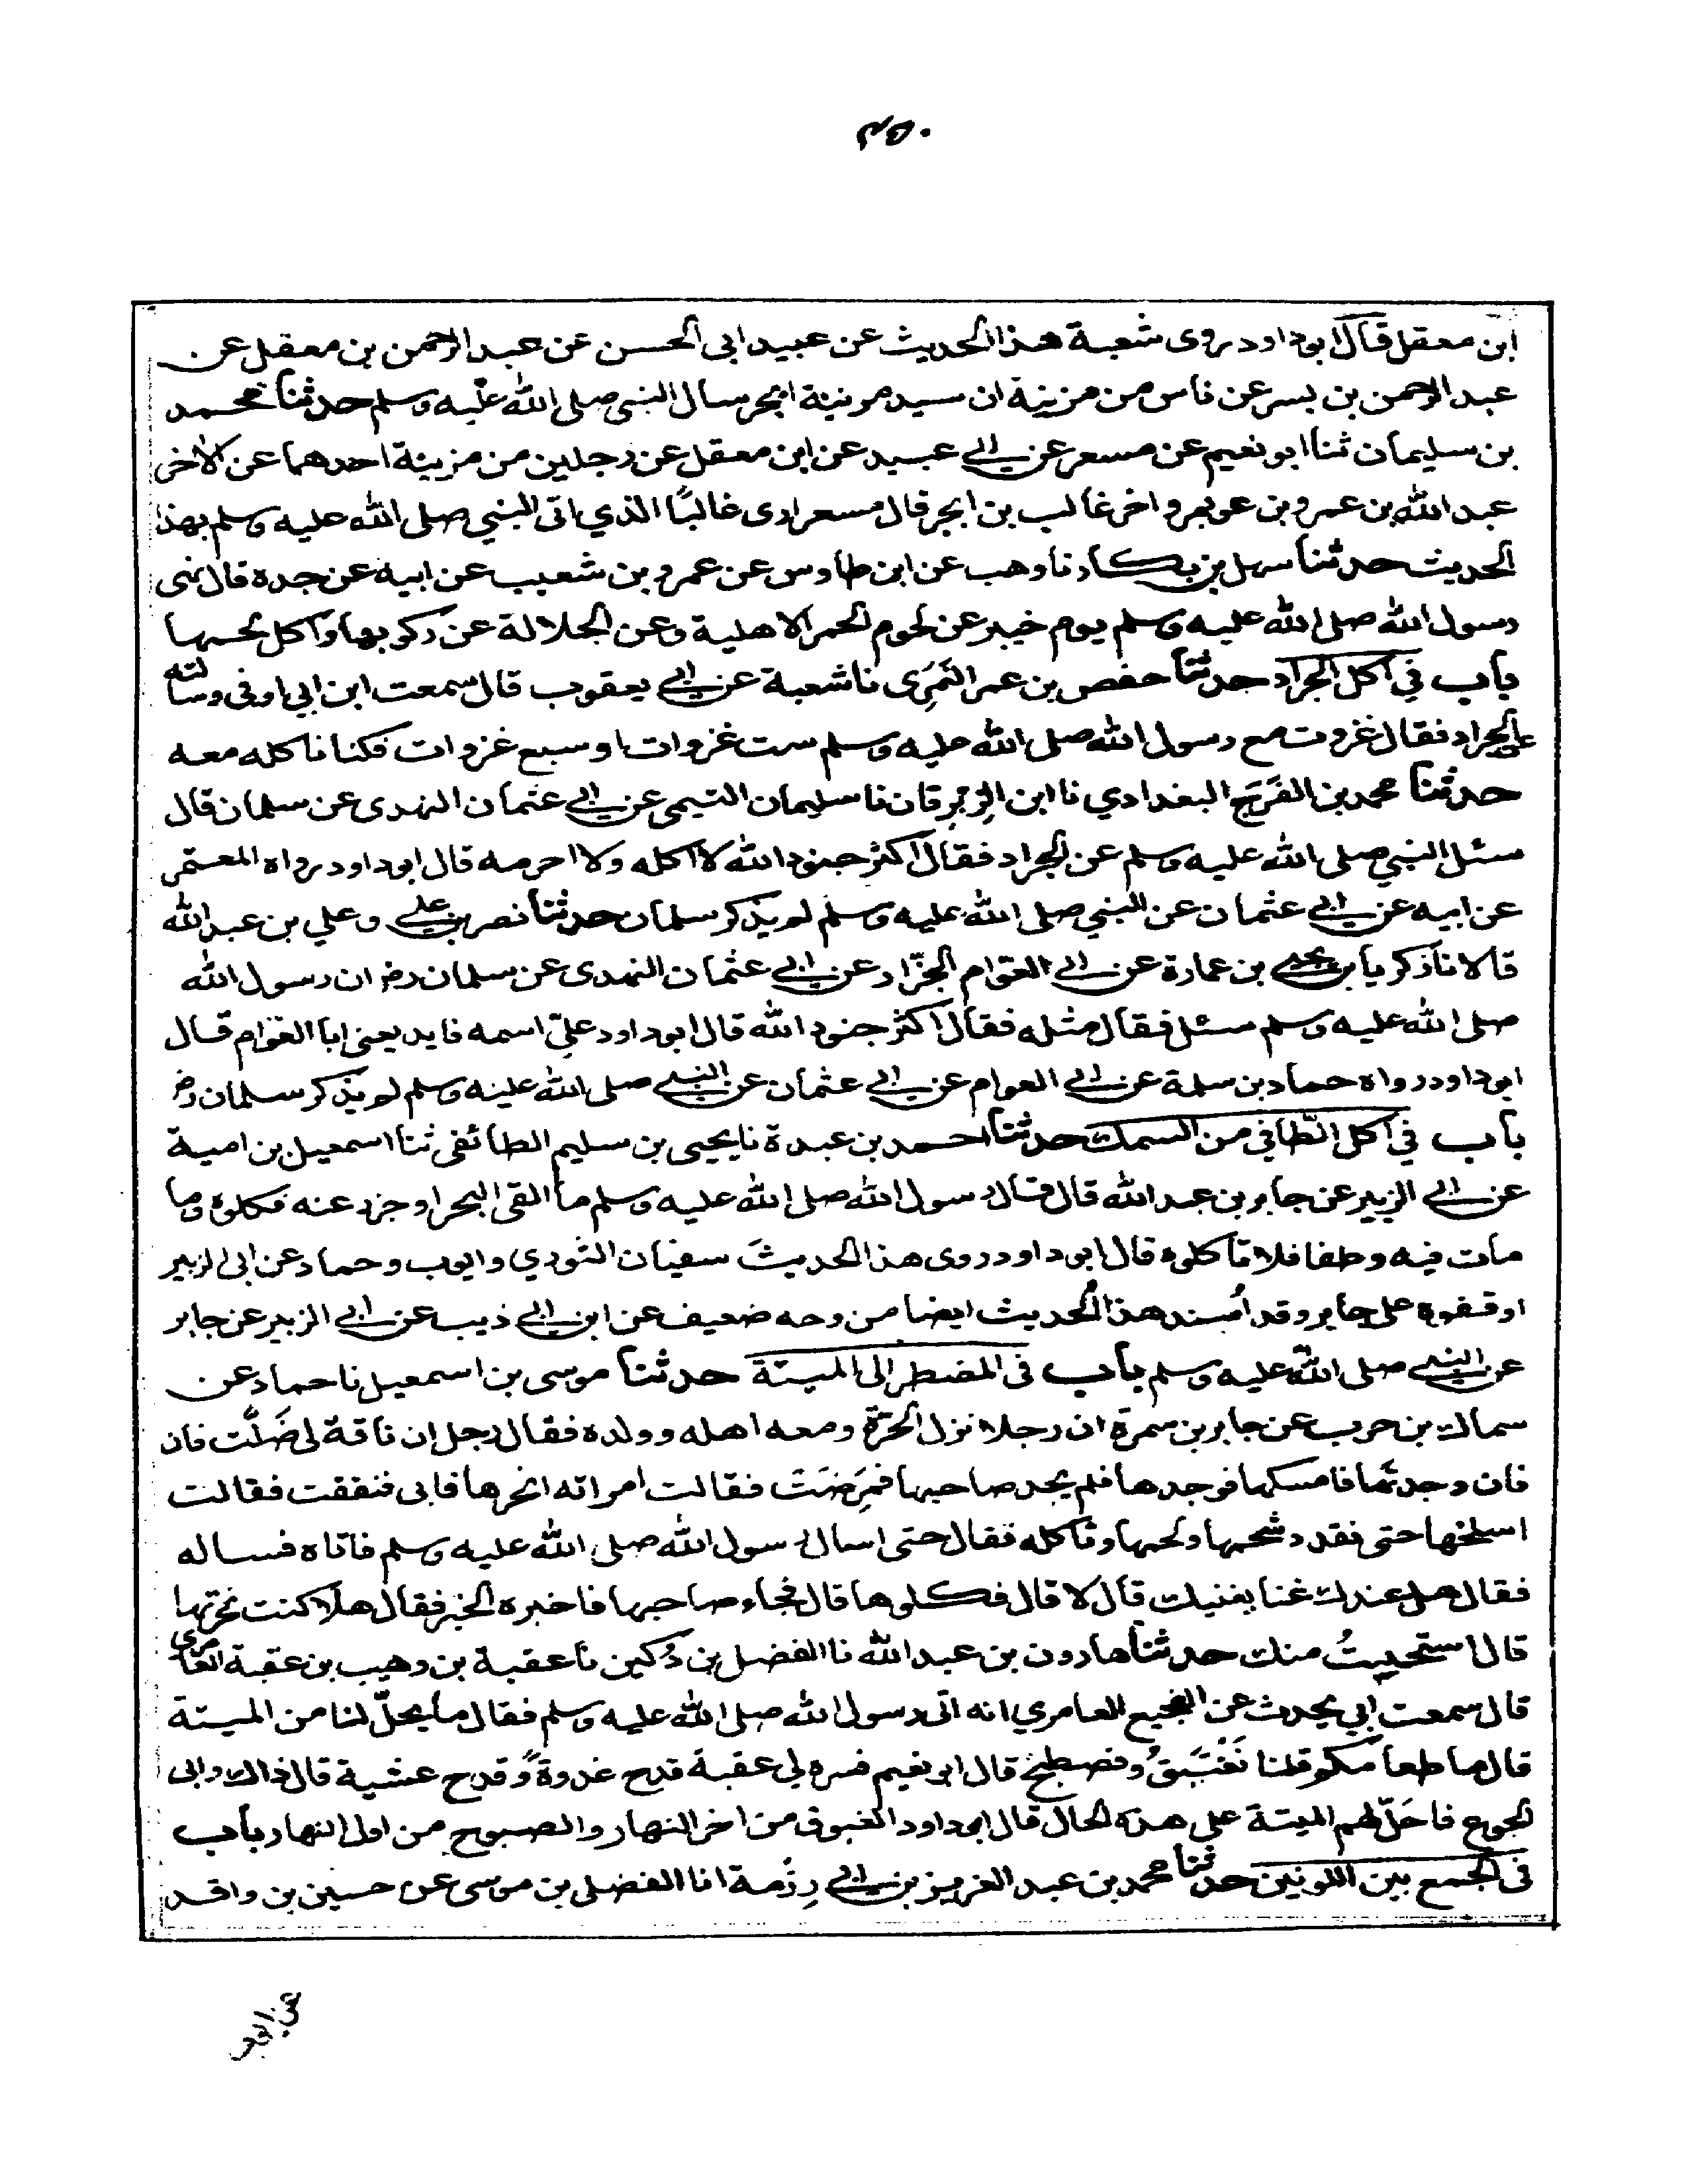 ابن معقل قال ابو داود روى شعبة هذا الحديث عن عبيد ابى الحسن عن عبد الرحمن بن معقل عن
عبد الرحمن بن بسر عن ناس من مزينة ان سيد مزينة ابجر سال النبي صلى الله عليه وسلم حدثنا محمد
بن سليمان ثنا ابو نعيم عن مسعر عن ابي عبيد عن ابن معقل عن رجلين من مزينة احدهما عن الاخر
عبد الله بن عمرو بن عويمر و اخر غالب بن ابجر قال مسعر ارى غالبًا الذي اتى النبي صلى الله عليه وسلم بهذا
الحديث حدثنا سهل بن بكار نا وهب عن ابن طاوس عن عمرو بن شعيب عن ابيه عن جده قال نهى
رسول الله صلى الله عليه وسلم يوم خيبر عن لحوم الحمر الاهلية وعن الجلالة عن ركوبها واكل لحمها
باب في اكل الجراد حدثنا حفص بن عمر النَّمَرِى نا شعبة عن ابي يعقوب قال سمعت ابن ابي اوفى وسالته
عن الجراد فقال غزوت مع رسول الله صلى الله عليه وسلم ست غزوات او سبع غزوات فكنا ناكله معه
حدثنا محمد بن الفَرَج البغدادي نا ابن الزِبرِقان نا سليمان التيمي عن ابي عثمان النهدى عن سلمان قال
سئل النبي صلى الله عليه وسلم عن الجراد فقال اكثر جنود الله لا اكله ولا احرمه قال ابو داود رواه المعتمر
عن ابيه عن ابي عثمان عن النبي صلى الله عليه وسلم لم يذكر سلمان حدثنا نصر بن علي وعلي بن عبد الله
قالا نا زكريا بن يحيى بن عمارة عن ابي العوّام الجزّار عن ابي عثمان النهدى عن سلمان رض ان رسول الله
صلى الله عليه وسلم سئل فقال مثله فقال اكثر جنود الله قال ابو داود عليّ اسمه فايد يعني ابا العوّام قال
ابو داود رواه حماد بن سلمة عن ابي العوام عن ابي عثمان عن النبي صلى الله عليه وسلم لم يذكر سلمان رض
باب في اكل الطّافي من السمك حدثنا احمد بن عبدة نا يحيى بن سليم الطائفى ثنا اسمعيل بن امية
عن ابي الزبير عن جابر بن عبد الله قال قال رسول الله صلى الله عليه وسلم ما القى البحر او جزر عنه فكلوه وما
مات فيه وطفا فلا تاكلوه قال ابو داود روى هذا الحديثَ سفيان الثوري وايوب وحماد عن ابى الزبير
اوقفوه على جابر وقد اُسند هذا الحديث ايضا من وجه ضعيف عن ابن ابي ذيب عن ابي الزبير عن جابر
عن النبي صلى الله عليه وسلم باب فى المضطر الى الميتة حدثنا موسى بن اسمعيل نا حماد عن
سماك بن حرب عن جابر بن سمرة ان رجلا نزل الحرّة ومعه اهله وولده فقال رجل ان ناقة لى ضَلَّت فان
فان وجدتَها فامسكها فوجدها فلم يجد صاحبها فمَرِضَتَ فقالت امراته انحرها فابى فنفقت فقالت
اسلخها حتى نقدد شحمها ولحمها وناكله فقال حتى اسال رسول الله صلى الله عليه وسلم فاتاه فساله
فقال هل عندك غنا يغنيك قال لا قال فكلوها قال فجاء صاحبها فاخبره الخبر فقال هلا كنت نحرتها
قال استحييتُ منك حدثنا هارون بن عبد الله نا الفضل بن دُكين نا عقبة بن وهيب بن عقبة العامرى
قال سمعت ابي يحدث عن الفجيع العامري انه اتى رسول الله صلى الله عليه وسلم فقال ما يحلّ لنا من الميتة
قال ما طعامكم قلنا نَغْتَبِقُ ونصطبح قال ابو نعيم فسره لي عقبة قدح غدوةً وقدح عشية قال ذاك وابى
الجوع فاحَلّ لهم الميتة على هذه الحال قال ابو داود الغبوق من اخر النهار والصبوح من اول النهار باب
فى الجمع بين اللونين حدثنا محمد بن عبد العزيز بن ابي رِزْمة انا الفضل بن موسى عن حسين بن واقد